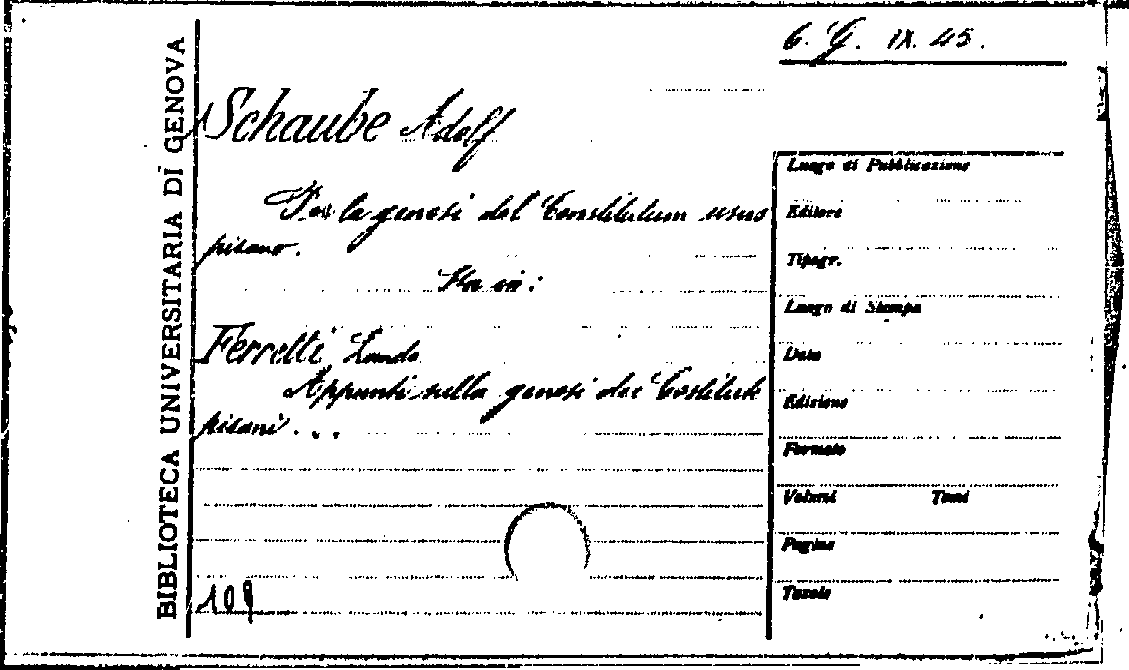 6. G. IX. 45.
BIBLIOTECA UNIVERSITARIA DI GENOVA
Schaube Adolf
Per la genesi del Constitutum usus
pisano.
Fa in:
Ferretti Lando
Appunti sulla genesi dei Costituti
pisani...
109
Luogo di Pubblicazione
Editore
Tipogr.
Luogo di Stampa
Data
Edizione
Formato
Volumi Tomi
Pagine
Tavole